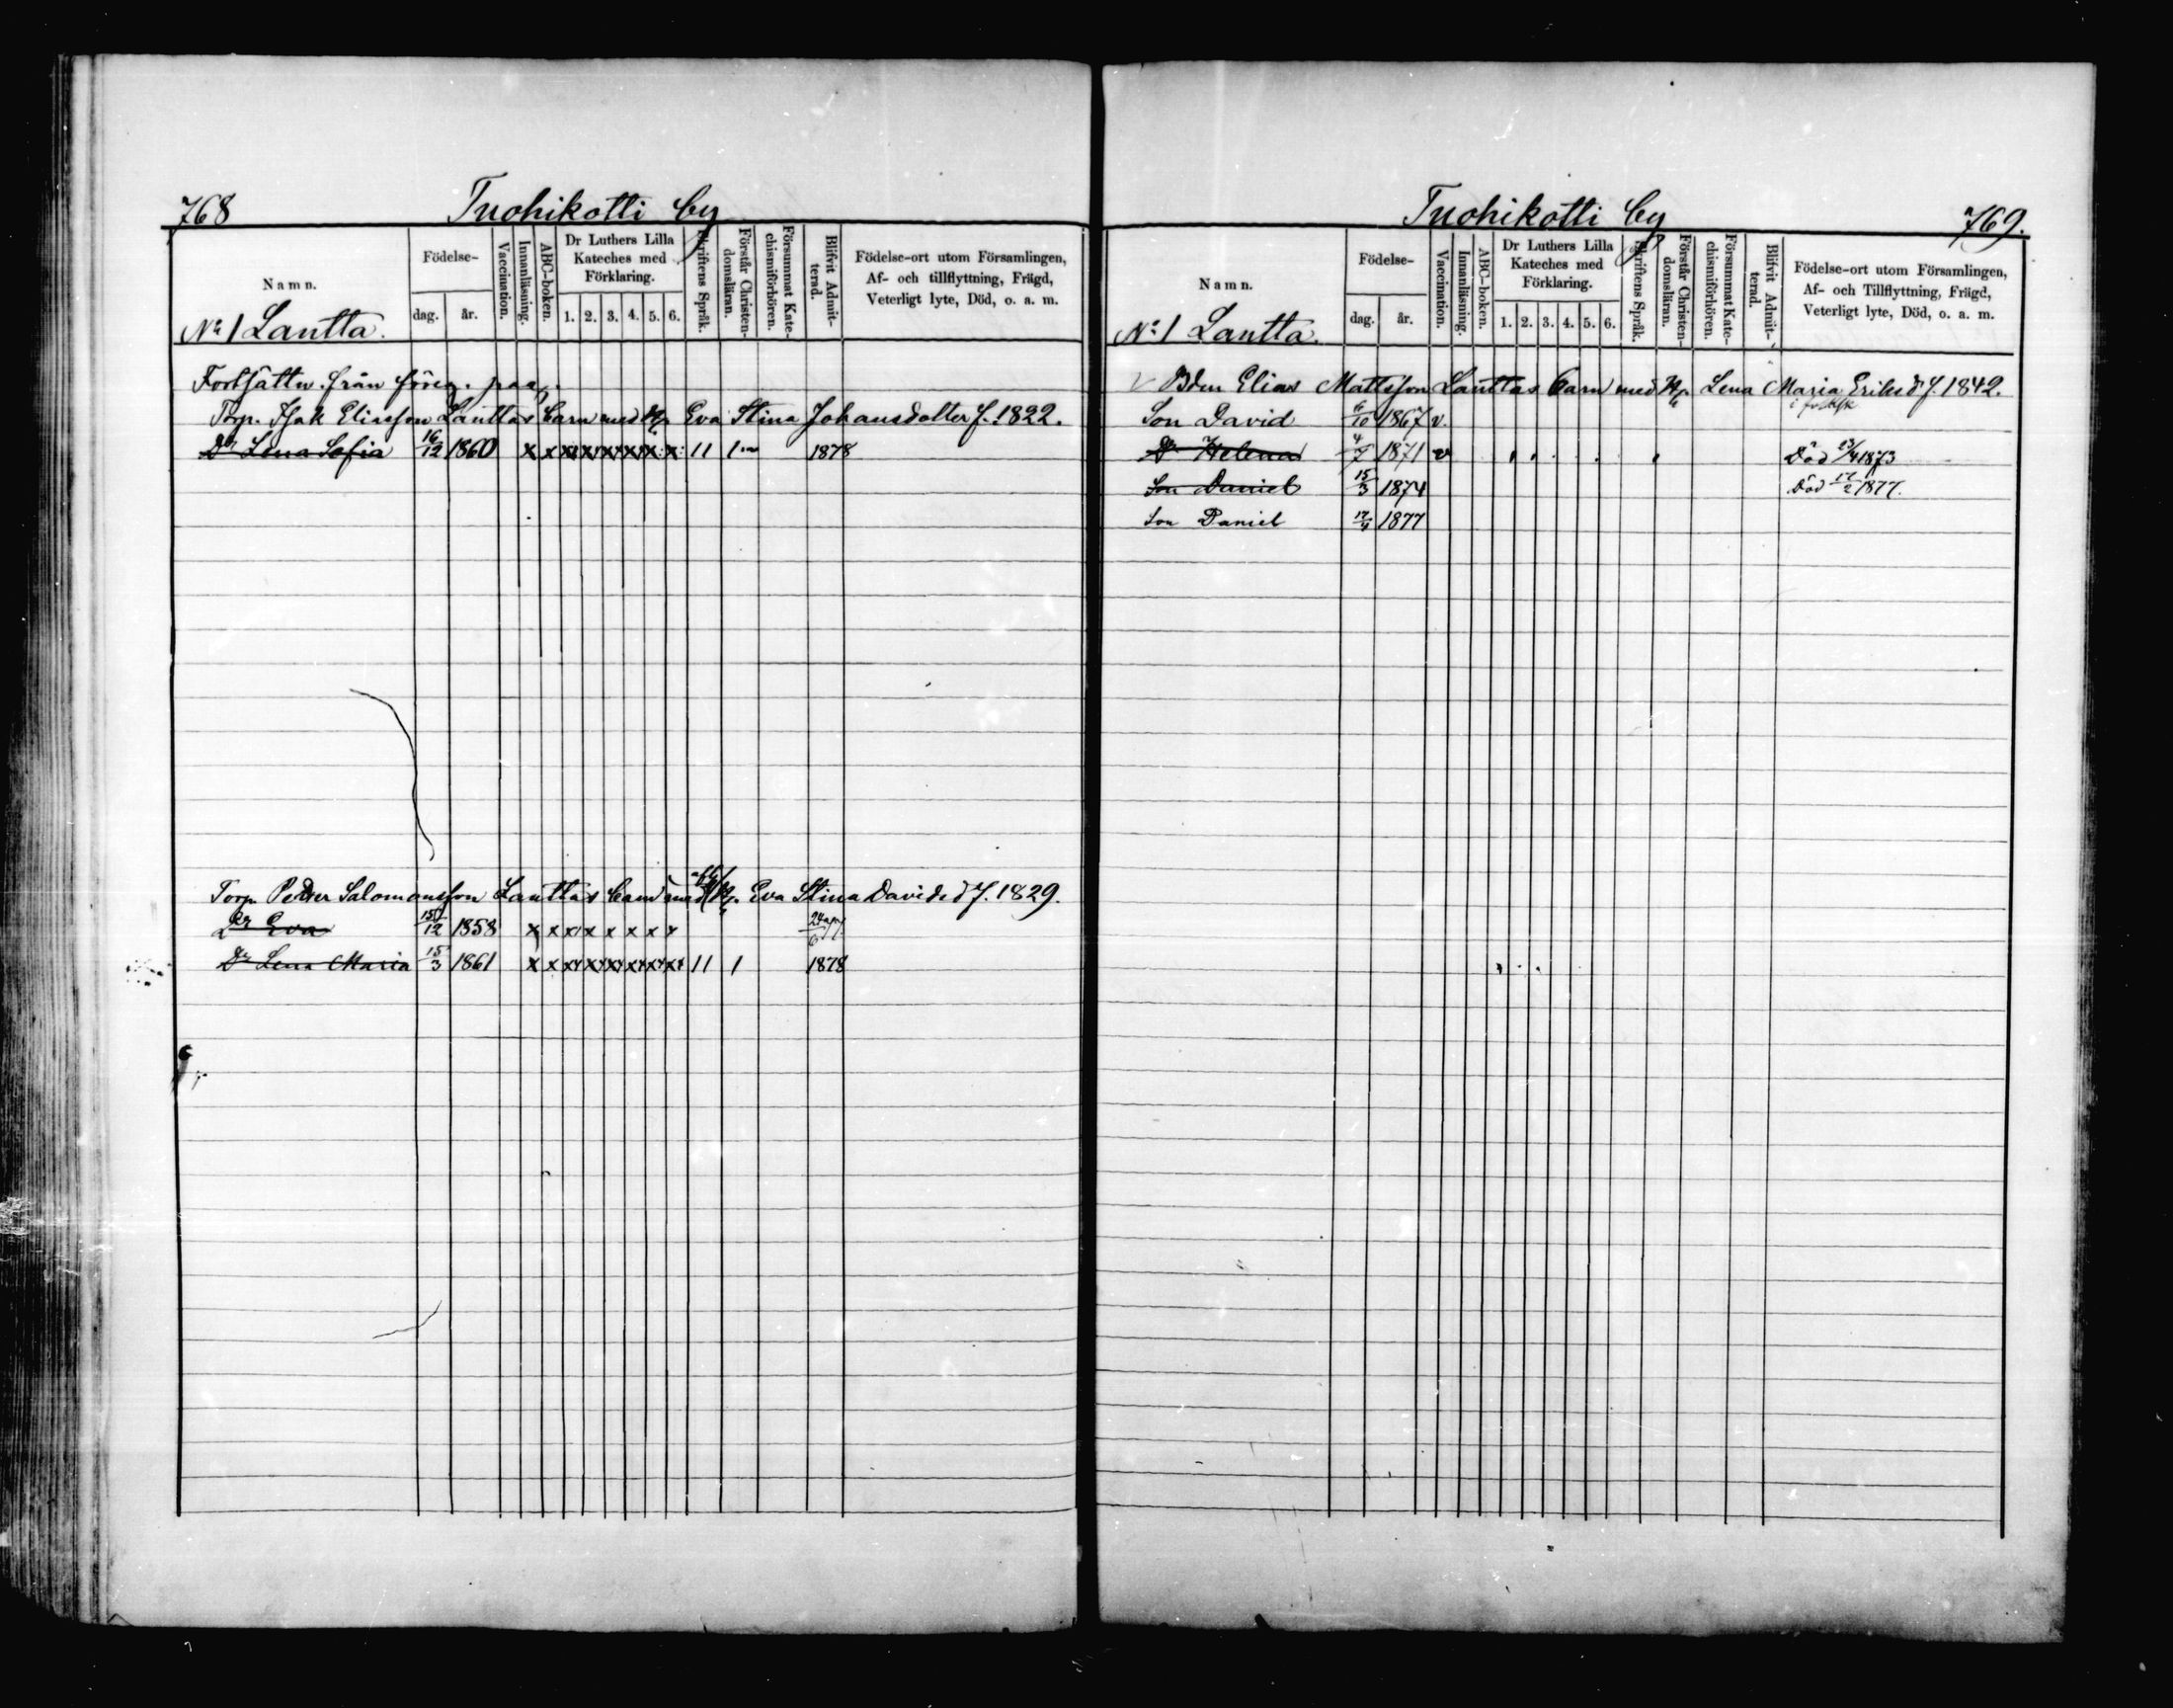 768 Tuohikotti by
Namn. Födelse- Vaccination. Innanläsning. ABC-boken. Dr Luthers Lilla Kateches med Förklaring. Skriftens Språk. Förstår Christendomsläran. Försummat Katechismiförhören. Blifvit Admitterad. Födelse-ort utom Församlingen, Af- och tillflyttning, Frägd, Veterligt lyte, Död, o. a. m.
dag. år. 1. 2. 3. 4. 5. 6.
No 1 Lantta.
Fortsättn. från föreg. pag.
Torp. Isak Eliasson Lanttas barn med H. Eva Stina Johansdotter f. 1822.
Dr Lena Sofia 16/12 1860 x x x x x x x x 11 1 1878
Torp. Petter Salomonsson Lanttas barn med H. Eva Stina Davidsd f. 1829.
Dr Eva 15/12 1858 x x x x x x x x
Dr Lena Maria 15/3 1861 x x x x x x x x 11 1 1878
Tuohikotti by 769.
Namn. Födelse- Vaccination. Innanläsning. ABC-boken. Dr Luthers Lilla Kateches med Förklaring. Skriftens Språk. Förstår Christendomsläran. Försummat Katechismiförhören. Blifvit Admitterad. Födelse-ort utom Församlingen, Af- och Tillflyttning, Frägd, Veterligt lyte, Död, o. a. m.
dag. år. 1. 2. 3. 4. 5. 6.
No 1 Lantta.
V Bden Elias Mattsson Lanttas barn med H. Lena Maria Eriksd f. 1842.
Son David 6/10 1867 v. i folksk
Dr Helena 4/7 1871 v Död 23/4 1873
Son Daniel 15/3 1874 Död 17/2 1877.
Son Daniel 17/9 1877